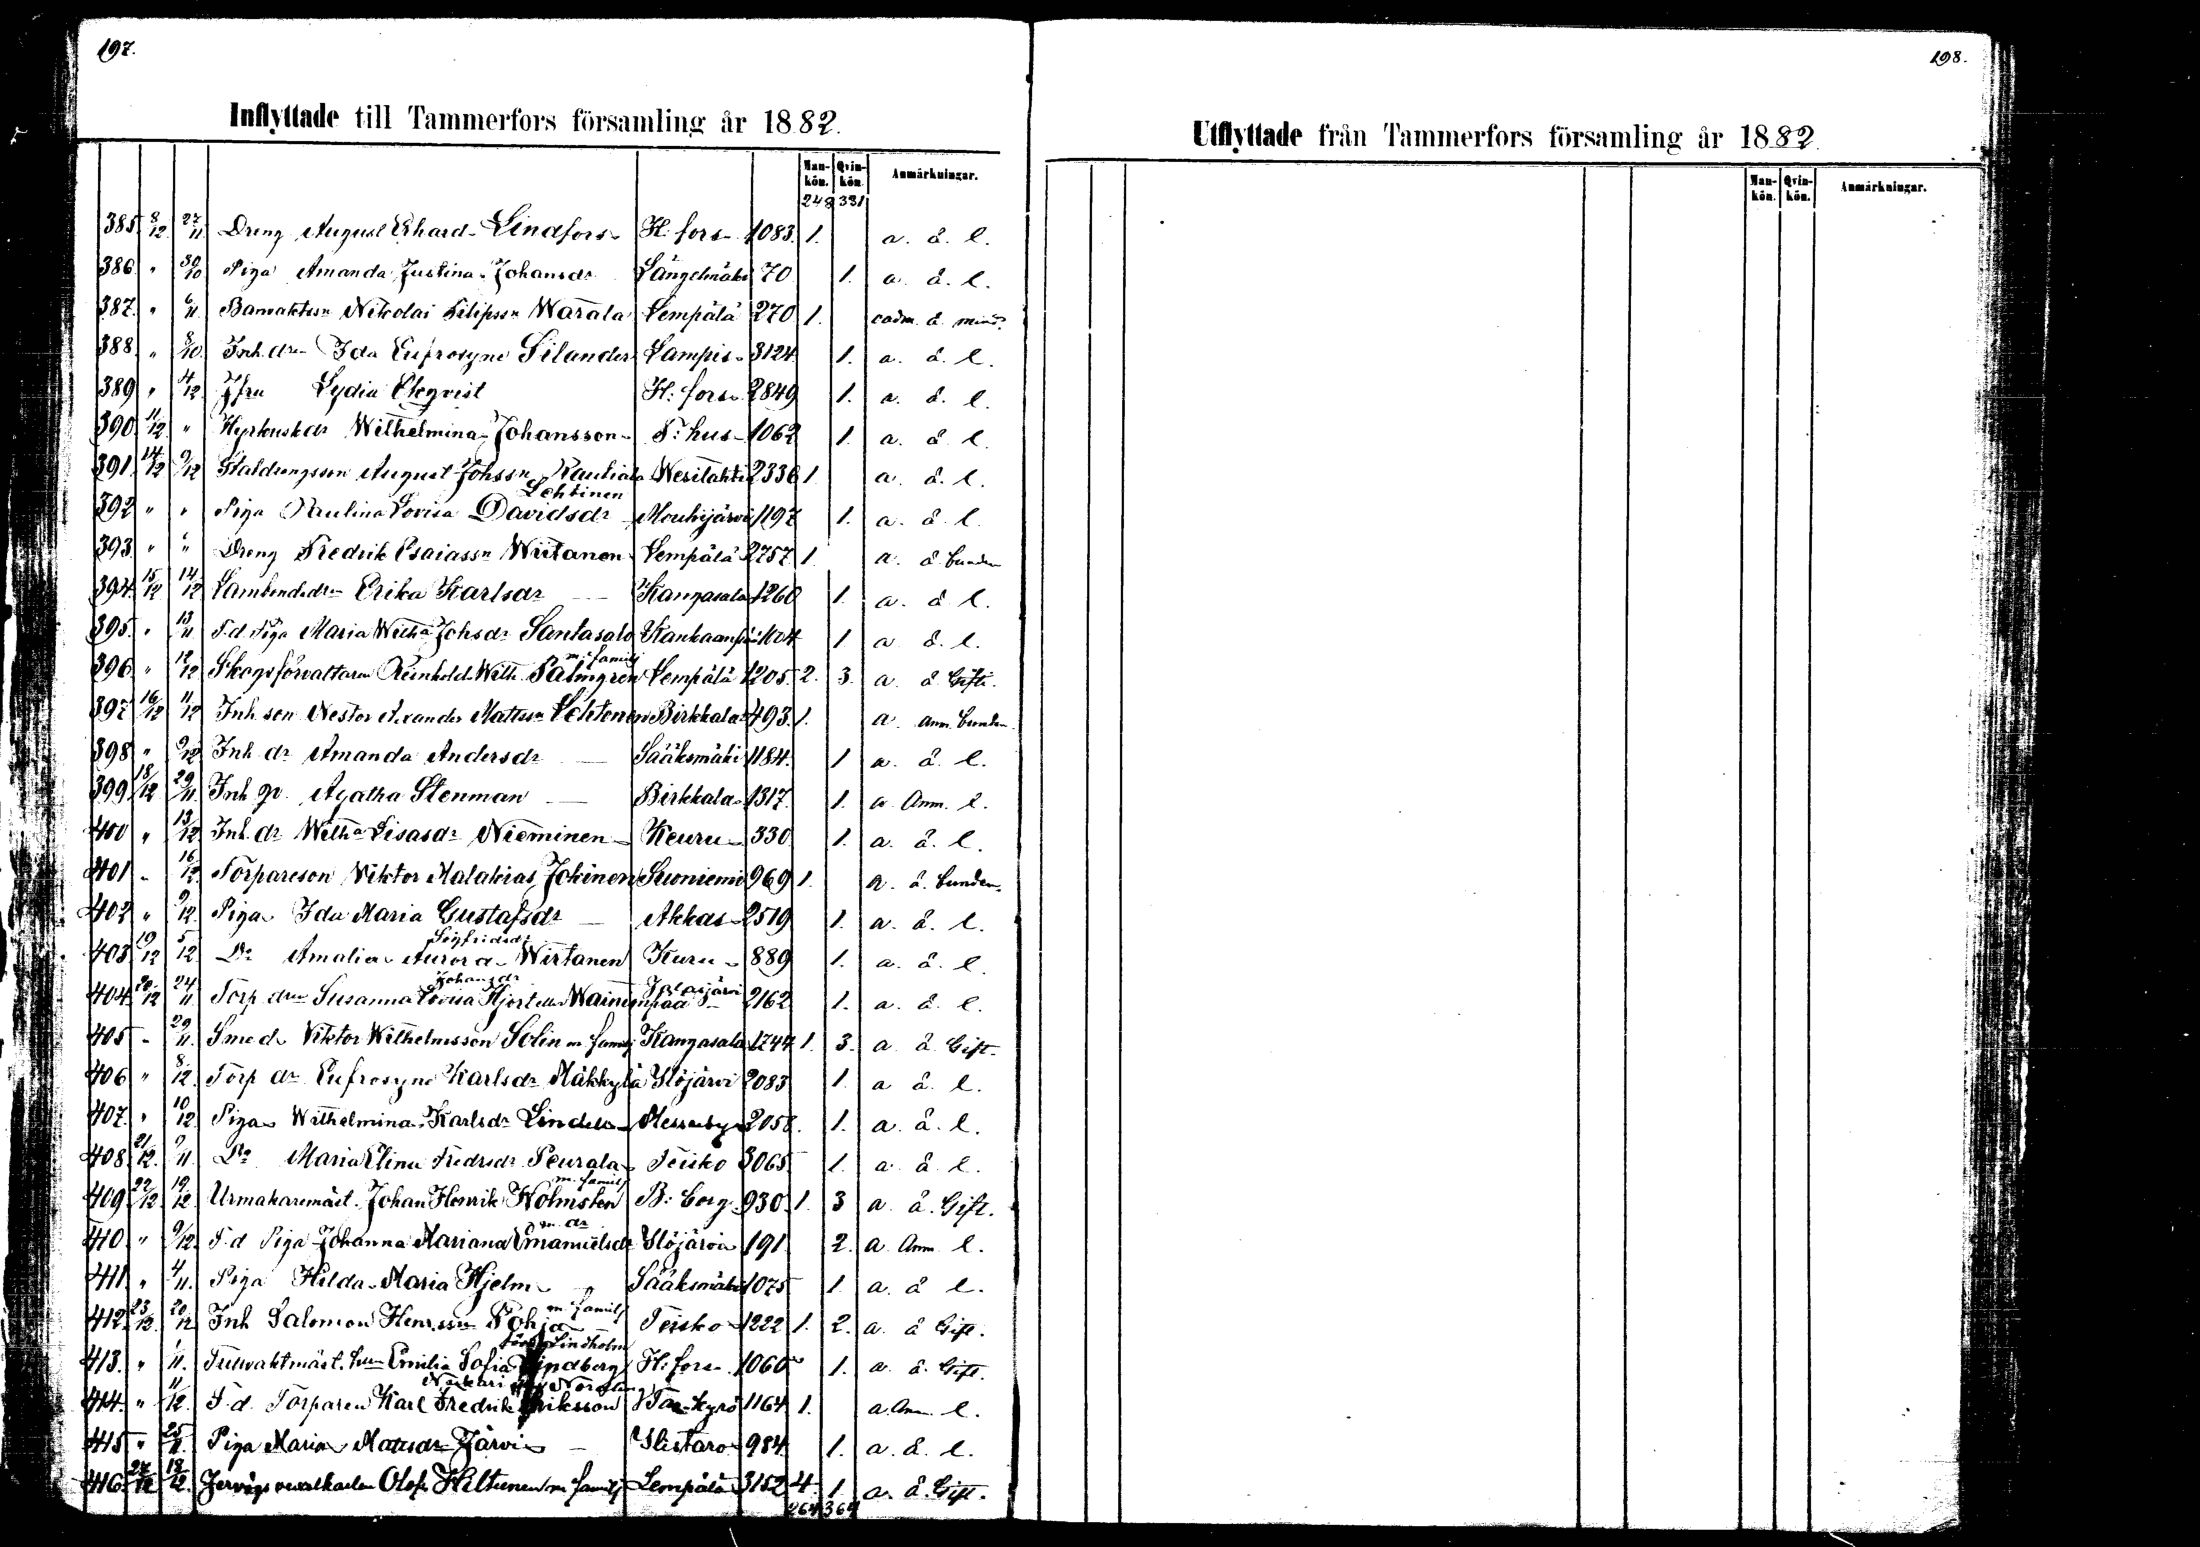 197.
Inflyttade till Tammerfors församling år 1882.
Man-kön. Qvin-kön. Anmärkningar.
248 331
385. 8/12 27/11 Dreng August Lindfors H:fors 1083. 1. a. å. l.
386. " 30/10 Piga Amanda Justina Johansdr Längelmäki 70 1. a. å. l.
387. " 6/11 Nikolai Filipssn Warala Lempälä 270 1.
388. " Inh. drn Ida Eufrosyne Silander Lampis 3124 1. a. å. l.
389 " 4/12 Jfru Lydia Ekqvist H:fors 2849 1. a. å. l.
390. 11/12 " Wilhelmina Johansson T:hus 1062 1. a. å. l.
391. 14/12 9/12 Staldrengsson August Johssn Rauhiala Wesilahti 2336 1. a. å. l.
Lehtinen
392 " " Piga Paulina Lovisa Davidsdr Mouhijärvi 1197 1. a. å. l.
393. " " Dreng Fredrik Esaiassn Wiitanen Lempälä 2757. 1. a. å bunden
394. 15/12 14/12 Erika Karlsdr Kangasala 1260 1. a. å l.
395. " 13/11 F.d Piga Maria Wilhа Johsdr Santasalo Kankaanpää 1604 1 a å. l.
m. familj
396 " 12/12 Skogsförvaltaren Reinhold Wilh. Palmgren Lempälä 1205. 2. 3. a. å Gift.
397 16/12 11/12 Inh son Nestor Alexander Mattssn Lehtonen Birkkala 493. 1. a. Anm. bunden
398 " 9/12 Inh dr Amanda Andersdr Sääksmäki 1184. 1 a. å. l.
399. 18/12 29/11 Inh qv. Agatha Stenman Birkkala 1317. 1. a. Anm. l.
400 " 13/12 Inh. dr Wilha Lisasdr Nieminen Keuru 330 1. a. å. l.
401 " 16/12 Torpareson Viktor Malakias Jokinen Suoniemi 969 1. a. å. bunden.
402 " 9/12 Piga Ida Maria Gustafsdr Akkas 2519 1. a. å. l.
Sigfridsdr
403 19/12 5/12 Do Amalia Aurora Wirtanen Kuru 889 1. a. å. l.
Johansdr Jalasjärvi
404. 20/12 24/11 Torp. drn Susanna Lovisa Hjort eller Wainionpää 2162 1. a. å. l.
405 " 29/11 Smed Viktor Wilhelmsson Solin m. familj Kangasala 1744 1. 3. a å Gift.
406 " 8/12 Torp dr Eufrosyne Karlsdr Mäkkylä Ylöjärvi 2083 1. a å. l.
407. " 10/12 Piga Wilhelmina Karlsdr Lindell Messuby 2058. 1. a. å. l.
408. 21/12 9/11 Do Maria Elina Fredrsdr Peurala Teisko 3065 1. a å l.
m. familj
409. 22/12 19/12 Urmakaremäst. Johan Henrik Holmsten B:borg 930. 1. 3 a. å. Gift.
m. dr
410. " 9/12 F.d Piga Johanna Mariana Emanuelsdr Ylöjärvi 191. 2. a. Anm. l.
411. " 4/11 Piga Hilda Maria Hjelm Sääksmäki 1075 1. a. å l.
m. familj
412. 23/12 20/12 Inh Salomon Henrssn Pohja Teisko 1222 1. 2. a. å Gift.
född Lindholm
413. " Tullvaktmäst. hu Emilia Sofia Lindberg H:fors 1060 1. a. å. Gift.
414. " 11/12 F.d. Torparen Karl Fredrik Eriksson Tav-kyrö 1164 1. a. Anm. l.
415 " 25/11 Piga Maria Mattsdr Järvi Ylistaro 984. 1. a. å. l.
416. 27/12 18/12 Olof Hiltunen m familj Lempälä 3152 4. 1. a. å. Gift.
264 364
198.
Utflyttade från Tammerfors församling år 1882.
Man-kön. Qvin-kön. Anmärkningar.